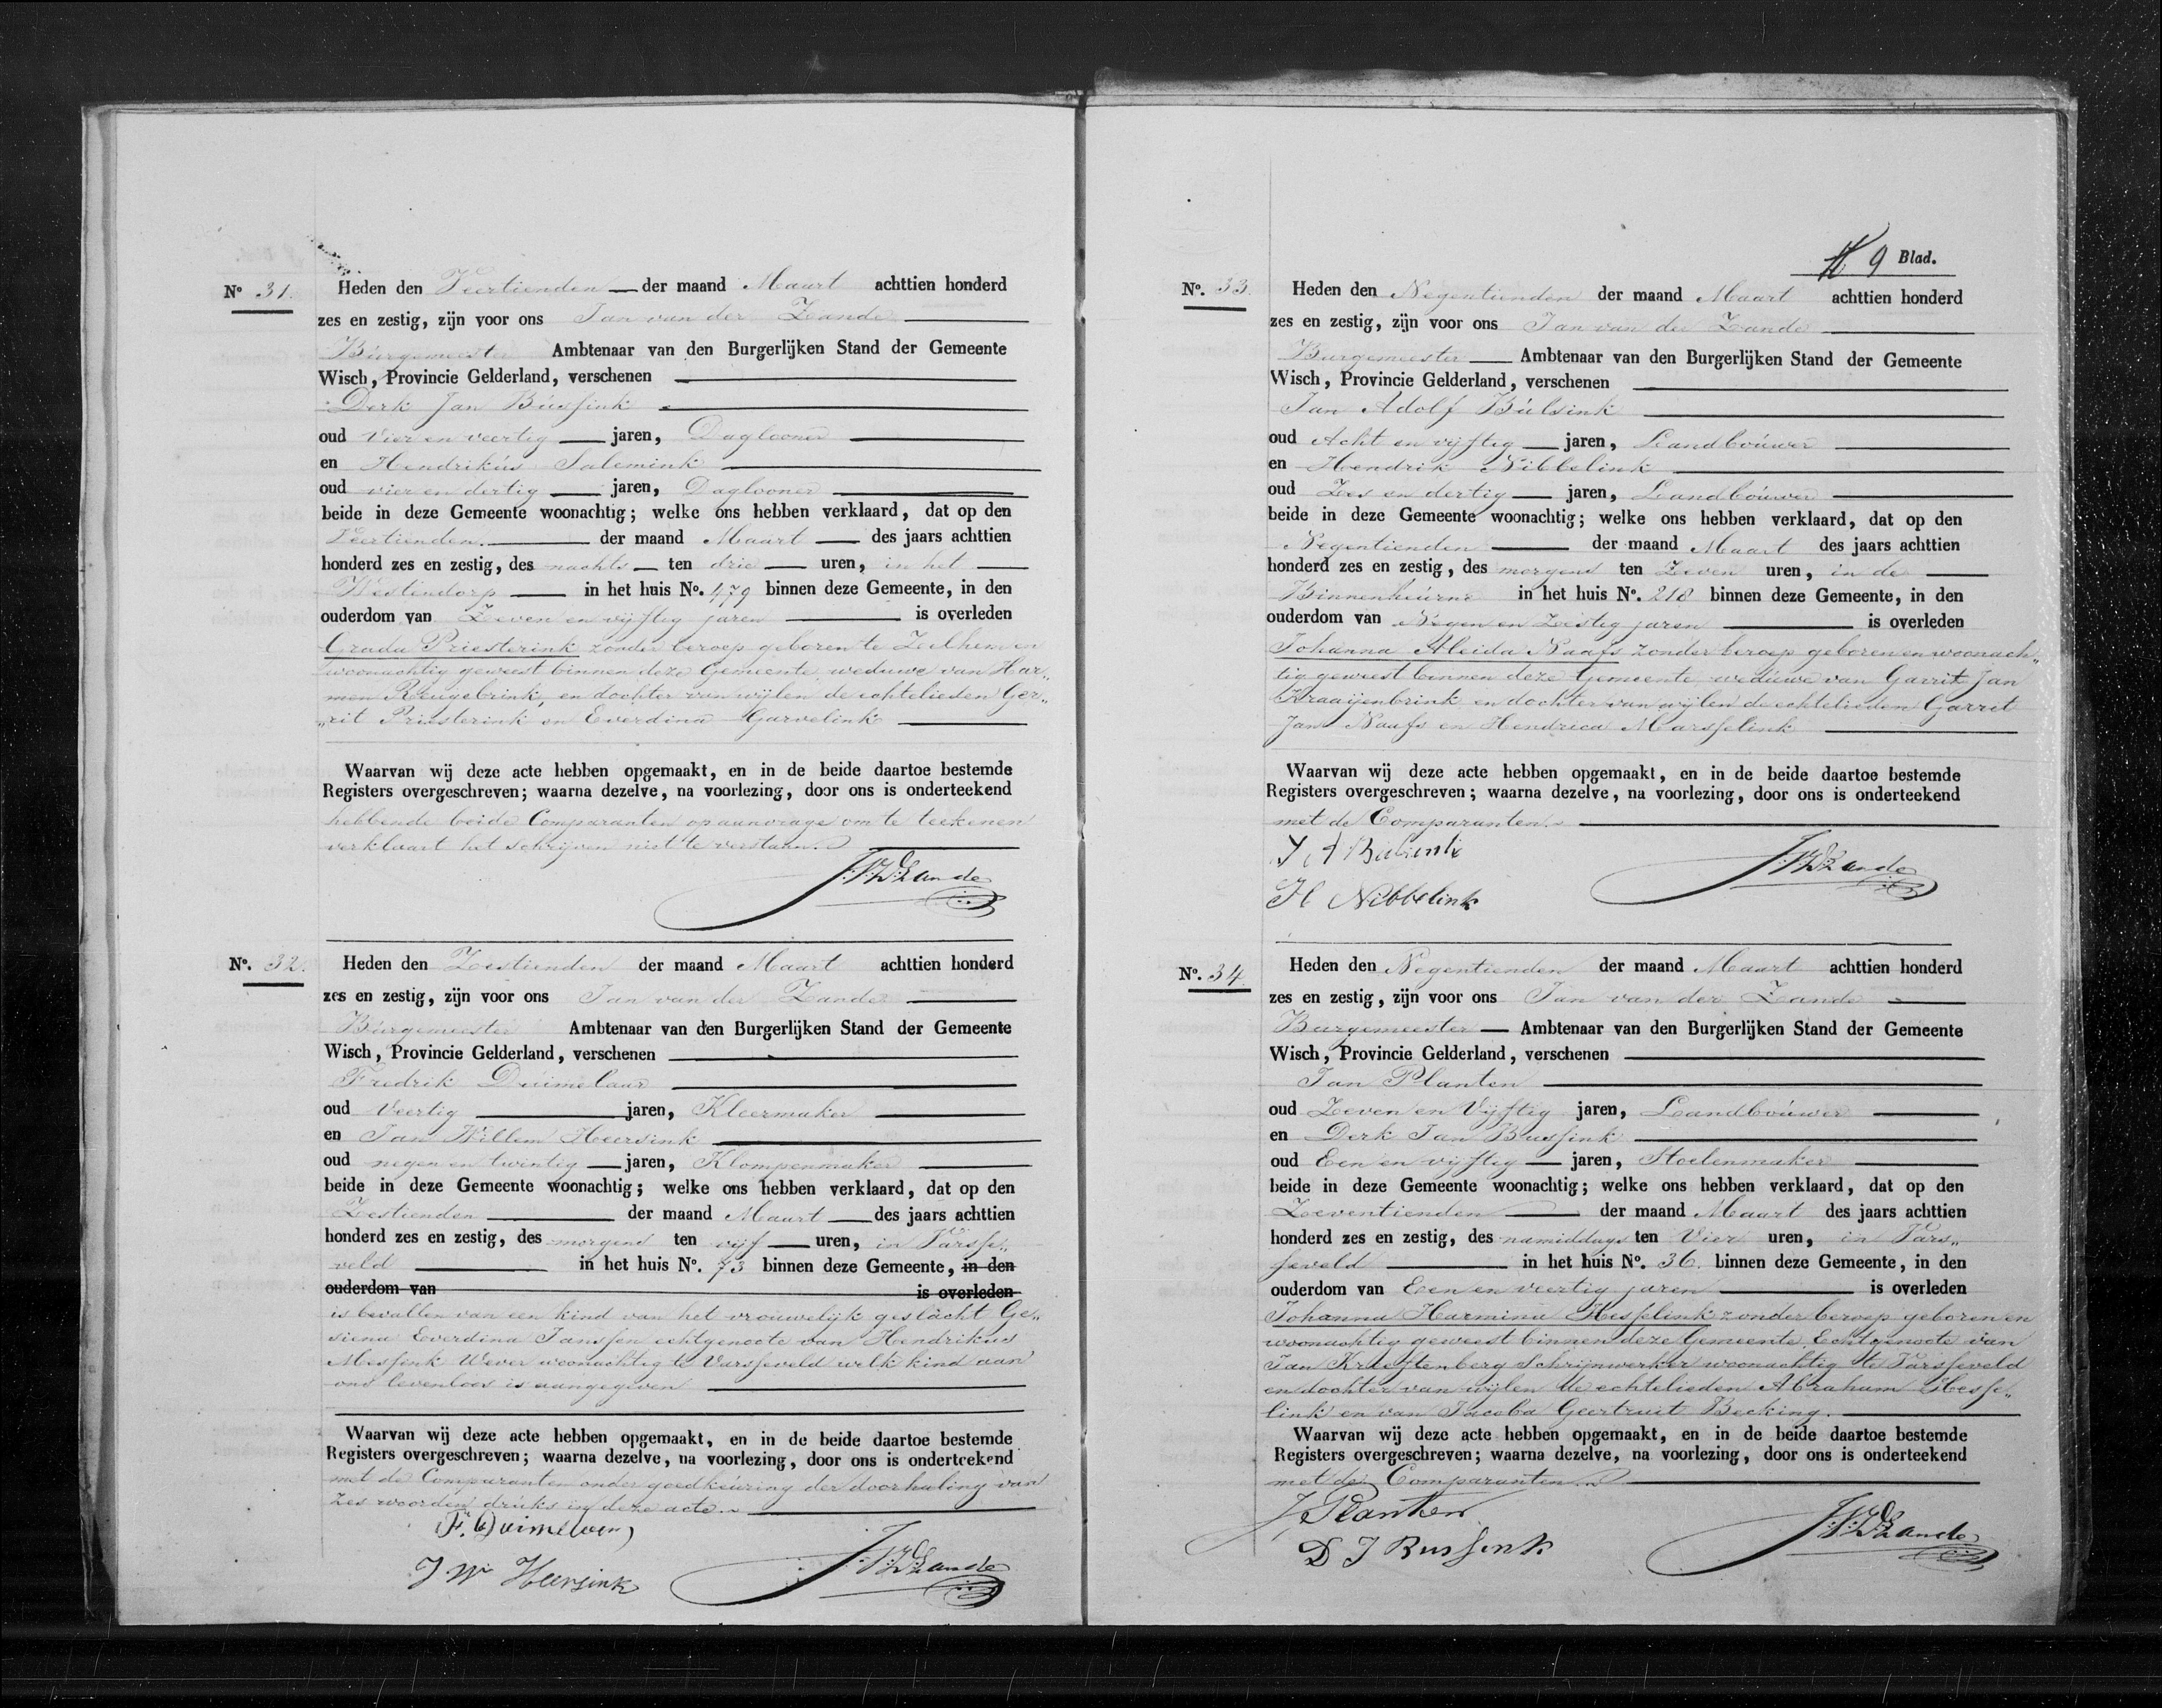 Nº 31.
Heden den Veertienden der maand Maart achttien honderd
zes en zestig, zijn voor ons Jan van der Zande
Burgemeester Ambtenaar van den Burgerlijken Stand der Gemeente
Wisch, Provincie Gelderland, verschenen
Derk Jan Bussink
oud vier en veertig jaren, Daglooner
en Hendrikus Salemink
oud vier en dertig jaren, Daglooner
beide in deze Gemeente woonachtig; welke ons hebben verklaard, dat op den
Veertienden der maand Maart des jaars achttien
honderd zes en zestig, des nachts ten drie uren, in het
Westendorp in het huis Nº. 479 binnen deze Gemeente, in den
ouderdom van Zeven en vijftig jaren is overleden
Grada Priesterink zonder beroep geboren te Zelhem en
woonachtig geweest binnen deze Gemeente weduwe van Har„
men Reugebrink, en dochter van wijlen de echtelieden Ger„
„rit Priesterink en Everdina Garvelink
Waarvan wij deze acte hebben opgemaakt, en in de beide daartoe bestemde
Registers overgeschreven; waarna dezelve, na voorlezing, door ons is onderteekend
hebbende beide Comparanten op aanvrage om te teekenen
verklaart het schrijven niet te verstaan.
J.V.D.Zande
Nº. 32.
Heden den Zestienden der maand Maart achttien honderd
zes en zestig, zijn voor ons Jan van der Zande
Burgemeester Ambtenaar van den Burgerlijken Stand der Gemeente
Wisch, Provincie Gelderland, verschenen
Fredrik Duimelaar
oud Veertig jaren, Kleermaker
en Jan Willem Heersink
oud negen en twintig jaren, Klompenmaker
beide in deze Gemeente woonachtig; welke ons hebben verklaard, dat op den
Zestienden der maand Maart des jaars achttien
honderd zes en zestig, des morgens ten vijf uren, in Varsse„
veld in het huis Nº. 73 binnen deze Gemeente, in den
ouderdom van is overleden
is bevallen van een kind van het vrouwelijk geslacht Ge„
siena Everdina Janssen echtgenoote van Hendrikus
Messink Wever woonachtig te Varsseveld welk kind aan
ons levenloos is aangegeven
Waarvan wij deze acte hebben opgemaakt, en in de beide daartoe bestemde
Registers overgeschreven; waarna dezelve, na voorlezing, door ons is onderteekend
met de Comparanten onder goedkeuring der doorhaling van
zes woorden druks in deze acte.
F. Duimelaar
J W Heersink
J.V.D.Zande
9 Blad.
Nº. 33.
Heden den Negentienden der maand Maart achttien honderd
zes en zestig, zijn voor ons Jan van der Zande
Burgemeester Ambtenaar van den Burgerlijken Stand der Gemeente
Wisch, Provincie Gelderland, verschenen
Jan Adolf Bulsink
oud Acht en vijftig jaren, Landbouwer
en Hendrik Nibbelink
oud Zes en dertig jaren, Landbouwer
beide in deze Gemeente woonachtig; welke ons hebben verklaard, dat op den
Negentienden der maand Maart des jaars achttien
honderd zes en zestig, des morgens ten Zeven uren, in de
Binnenheurne in het huis Nº. 218 binnen deze Gemeente, in den
ouderdom van Negen en Zestig jaren is overleden
Johanna Aleida Naafs zonder beroep geboren en woonach„
tig geweest binnen deze Gemeente weduwe van Garrit Jan
Kraaijenbrink en dochter van wijlen de echtelieden Garrit
Jan Naafs en Hendrica Marsselink
Waarvan wij deze acte hebben opgemaakt, en in de beide daartoe bestemde
Registers overgeschreven; waarna dezelve, na voorlezing, door ons is onderteekend
met de Comparanten.
J A
H Nibbelink
J.V.D.Zande
Nº. 34.
Heden den Negentienden der maand Maart achttien honderd
zes en zestig, zijn voor ons Jan van der Zande
Burgemeester Ambtenaar van den Burgerlijken Stand der Gemeente
Wisch, Provincie Gelderland, verschenen
Jan Planten
oud Zeven en Vijftig jaren, Landbouwer
en Derk Jan Bussink
oud Een en vijftig jaren, Stoelenmaker
beide in deze Gemeente woonachtig; welke ons hebben verklaard, dat op den
Zeventienden der maand Maart des jaars achttien
honderd zes en zestig, des namiddags ten Vier uren, in Vars„
seveld in het huis Nº. 36. binnen deze Gemeente, in den
ouderdom van Een en veertig jaren is overleden
Johanna Harmina Hesselink zonder beroep geboren en
woonachtig geweest binnen deze Gemeente, Echtgenoote van
Jan Kruijtenberg Schrijnwerker woonachtig te Varsseveld
en dochter van wijlen de echtelieden Abraham Hesse„
link en van Jacoba Geertruit Becking.
Waarvan wij deze acte hebben opgemaakt, en in de beide daartoe bestemde
Registers overgeschreven; waarna dezelve, na voorlezing, door ons is onderteekend
met de Comparanten.
J Planten
D J Bussink
J.V.D.Zande